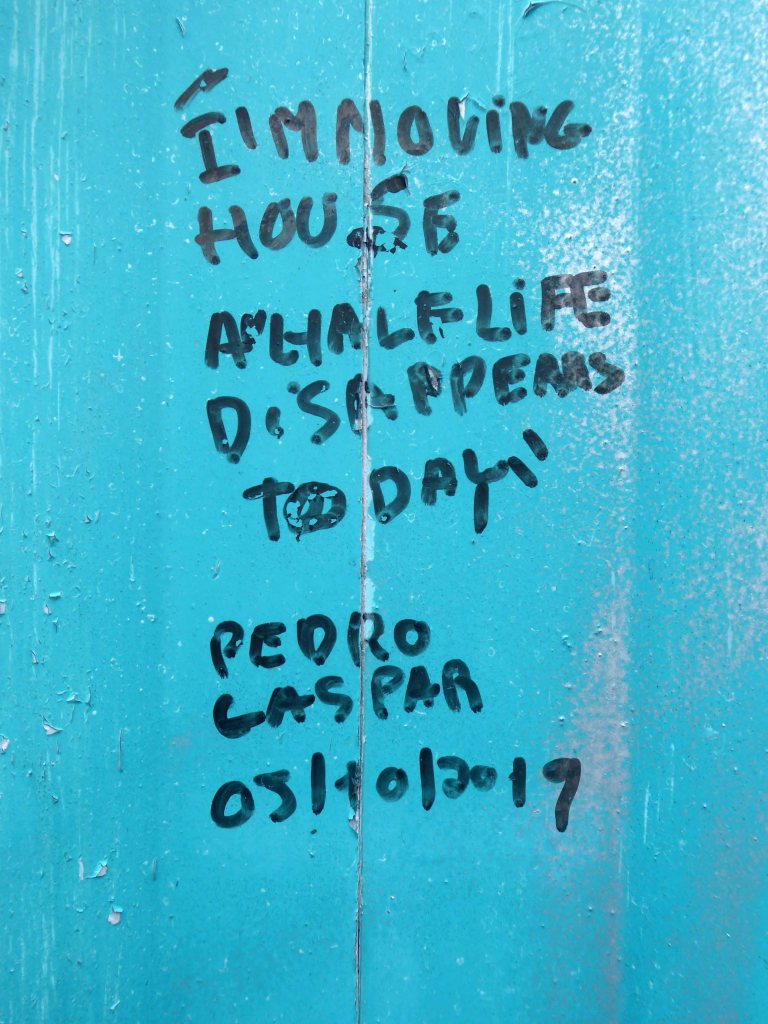 "I'M MOVING
HOUSE
A "HALF LIFE
DISAPPEARS
TODAY"
PEDRO
GASPAR
05/10/2019